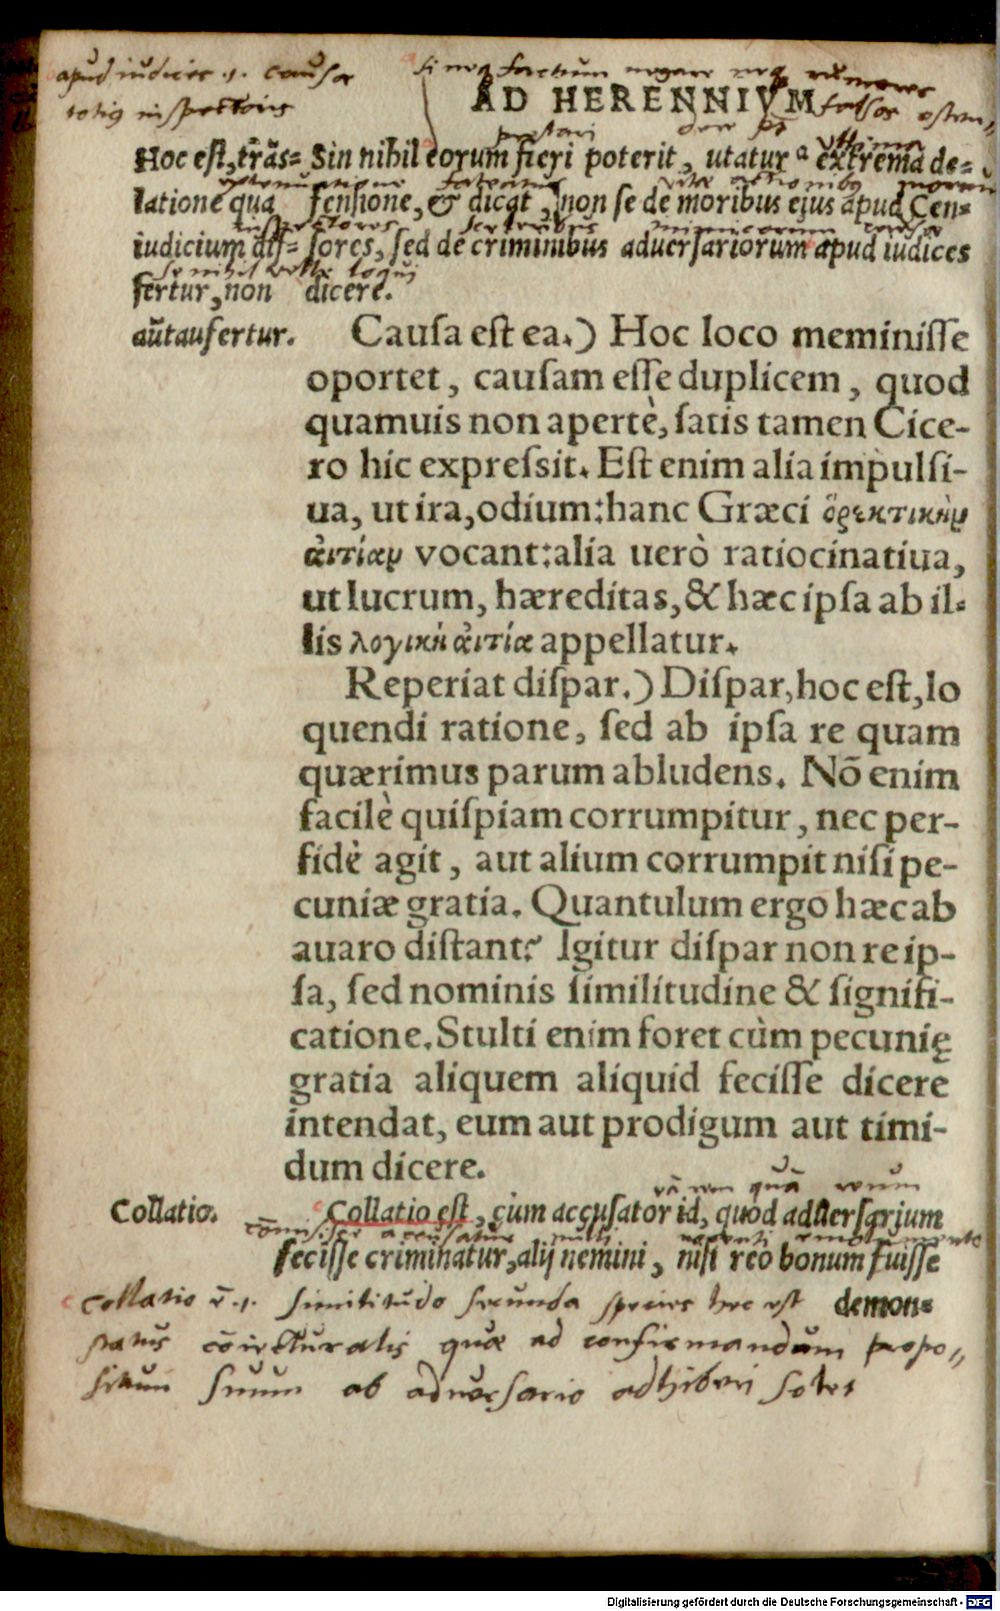 apud iudices .i. causae
totius inspectores
si neq; factum negare neq; rumores
falsos osten-
AD HERENNIVM
praestari
Hoc est, trãs=
latione qua
iudicium dif=
fertur, non
aũt aufertur.
Sin nihil eorum fieri poterit, utatur extrema de=
fensione, & dicat, non se de moribus ejus apud Cen=
sores, sed de criminibus aduersariorum apud iudices
se nihil velle loqui
dicere.
Causa est ea.) Hoc loco meminisse
oportet, causam esse duplicem, quod
quamuis non apertè, satis tamen Cice-
ro hic expressit. Est enim alia impulsi-
ua, ut ira, odium: hanc Græci ὀρεκτικὴν
ἀιτίαν vocant: alia uerò ratiocinatiua,
ut lucrum, hæreditas, & hæc ipsa ab il=
lis λογικὴ ἀιτία appellatur.
Reperiat dispar.) Dispar, hoc est, lo
quendi ratione, sed ab ipsa re quam
quærimus parum abludens. Nõ enim
facilè quispiam corrumpitur, nec per-
fidè agit, aut alium corrumpit nisi pe-
cuniæ gratia. Quantulum ergo hæc ab
auaro distant? Igitur dispar non re ip-
sa, sed nominis similitudine & signifi-
catione. Stulti enim foret cùm pecunię
gratia aliquem aliquid fecisse dicere
intendat, eum aut prodigum aut timi-
dum dicere.
quã reum
Collatio.
Collatio est, cum accusator id, quod aduersarium
cõmisisse accusatur nulli nocenti emolumento
fecisse criminatur, alij nemini, nisi reo bonum fuisse
demon=
Collatio .i. similitudo secunda species hec est
status cõiecturalis quae ad confirmandum propo-
situm suum ab aduersario adhiberi solet